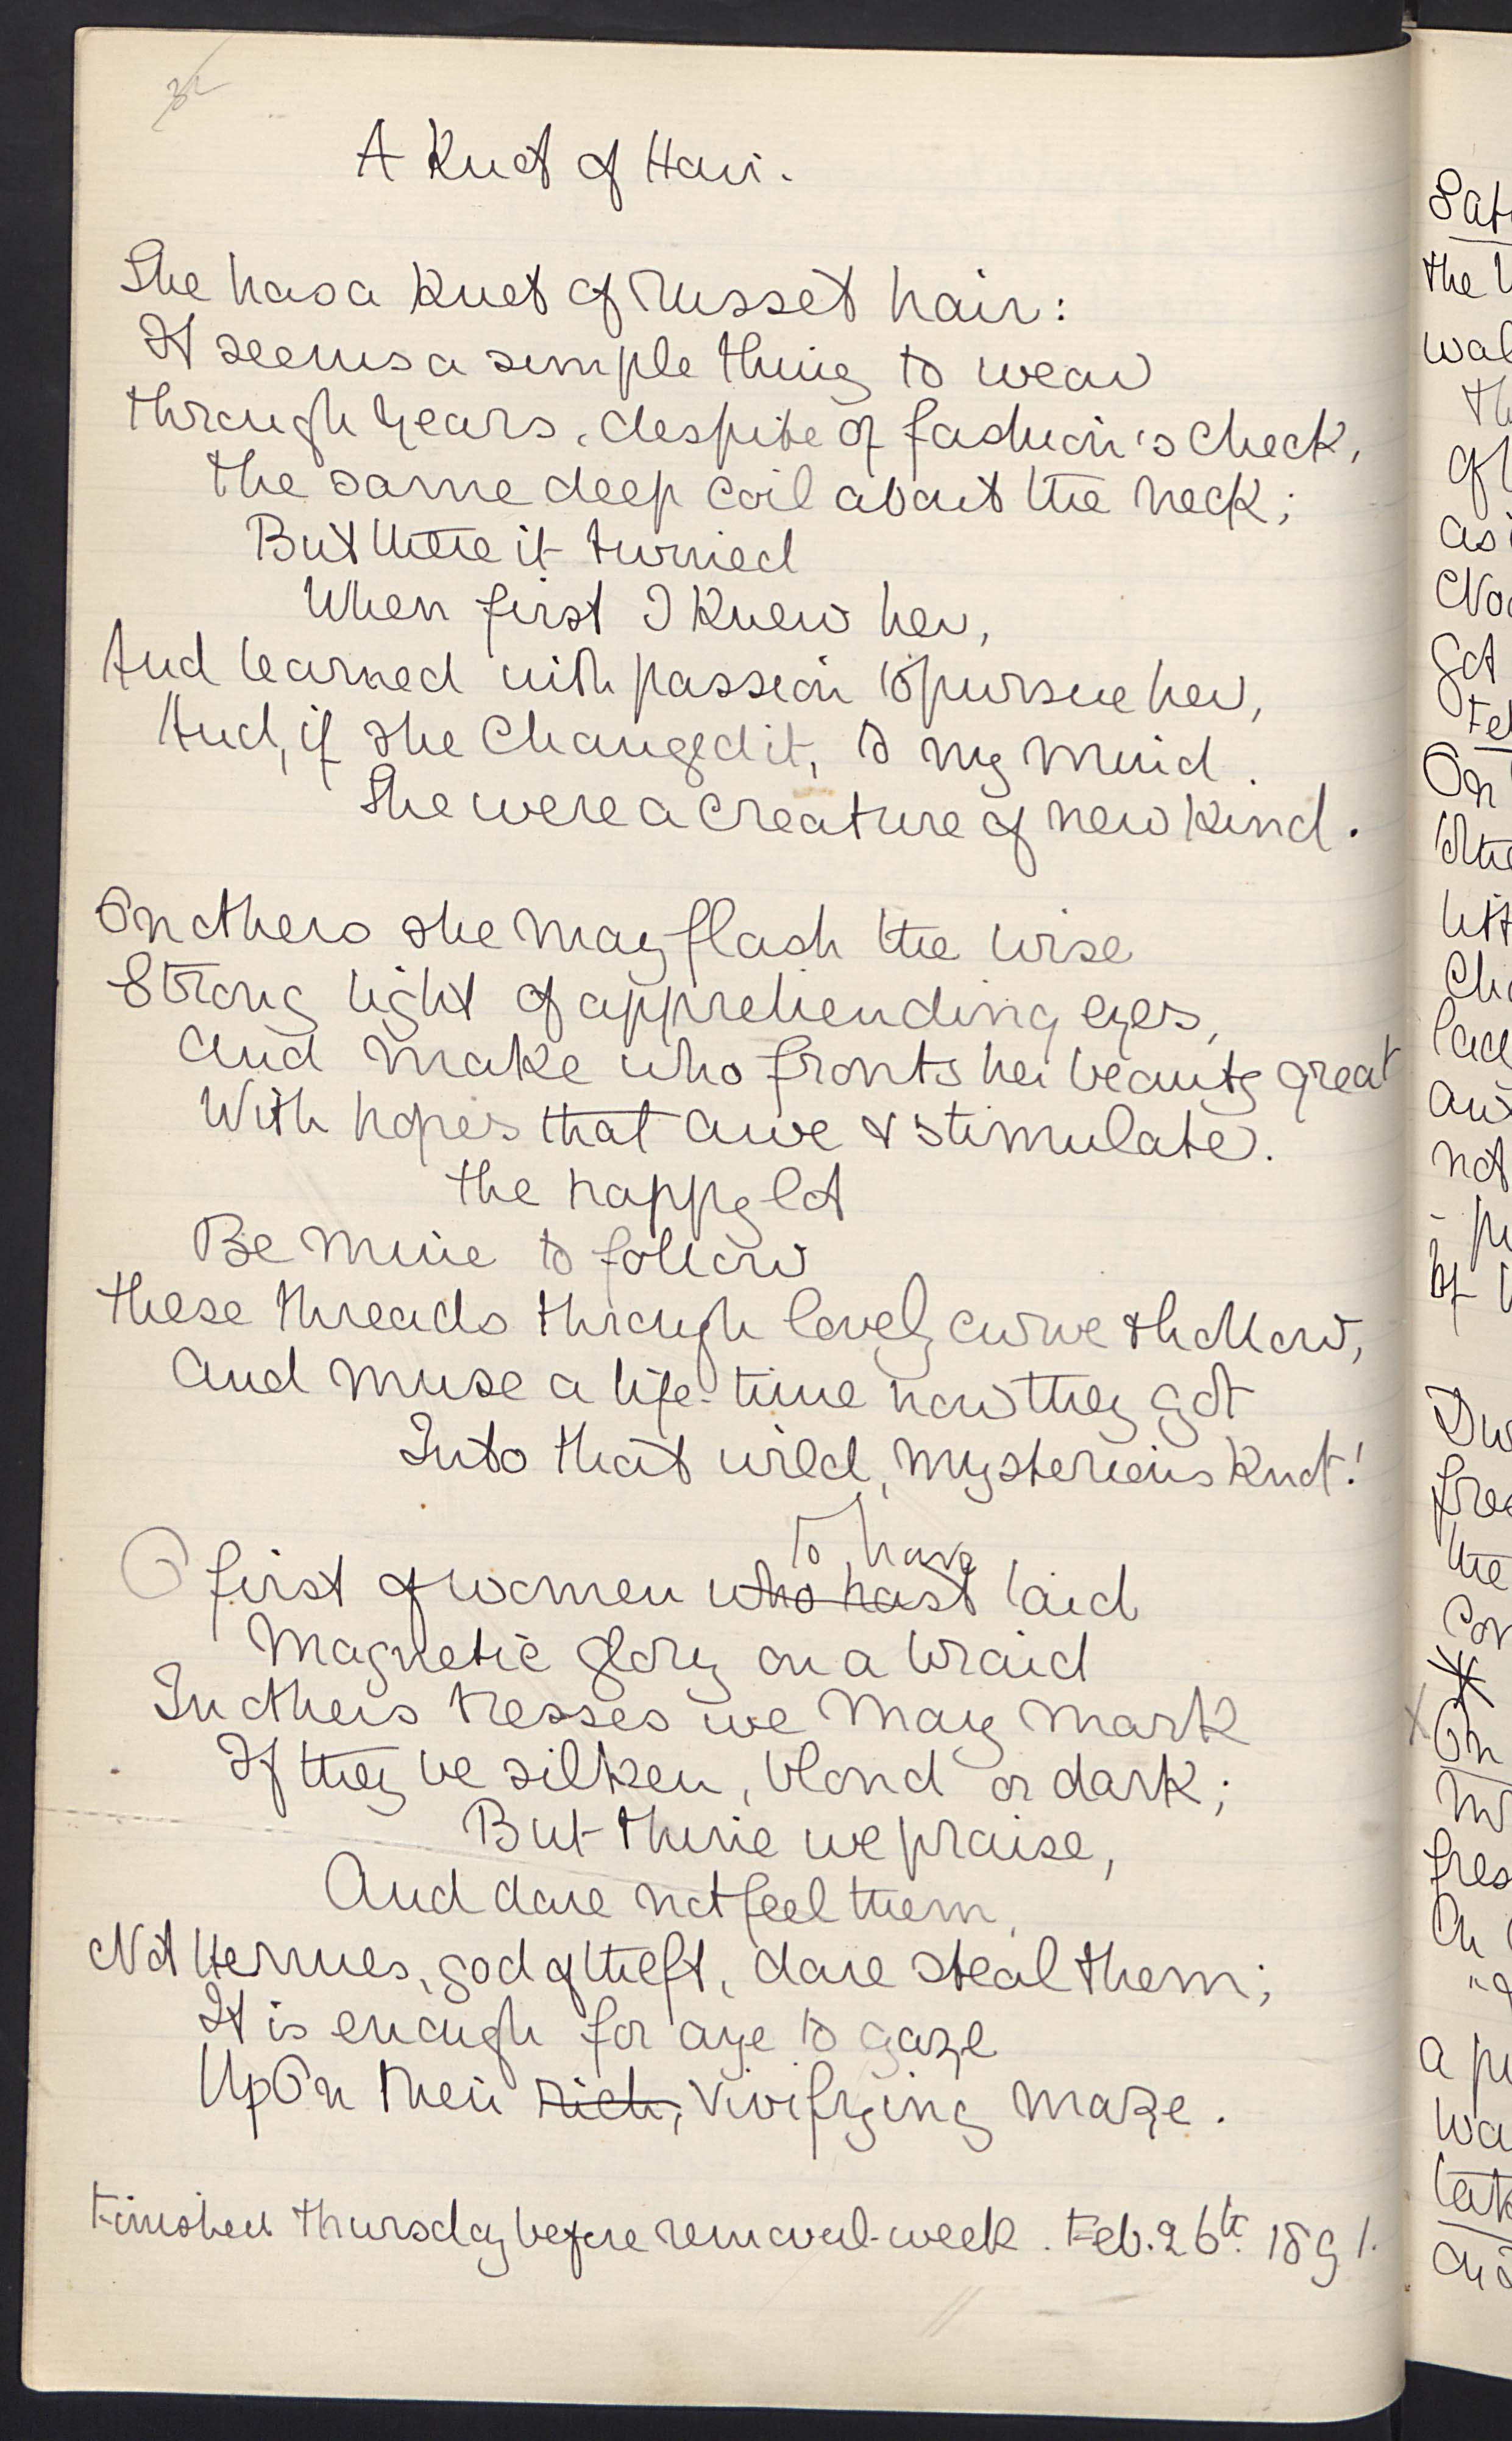 32
A Knot of Hair.
She has a knot of russet hair:
It seems a simple thing to wear
Through years, despite of fashion's check,
The same deep coil about the neck;
But there it turned
When first I knew her,
And learned with passion to pursue her,
And, if she changed it, to my mind.
She were a creature of new kind.
On others she may flash the wise
Strong light of apprehending eyes,
And make who fronts her beauty great
With hopes that awe & stimulate.
The happy lot
Be mine to follow
These threads through lovely curve & hollow,
And muse a life-time how they got
Into that wild, mysterious knot!
To have
O first of women who hast laid
Magnetic glory on a braid
In others tresses we may mark
If they be silken, blond or dark;
But thine we praise,
And dare not feel them,
Not Hermes, god of theft, dare steal them;
It is enough for aye to gaze
Upon their rich, vivifying maze.
Finished Thursday before removal-week. Feb. 26th. 1891.
the
wal
as i
got
On
not
fres
the
On
fres
a pu